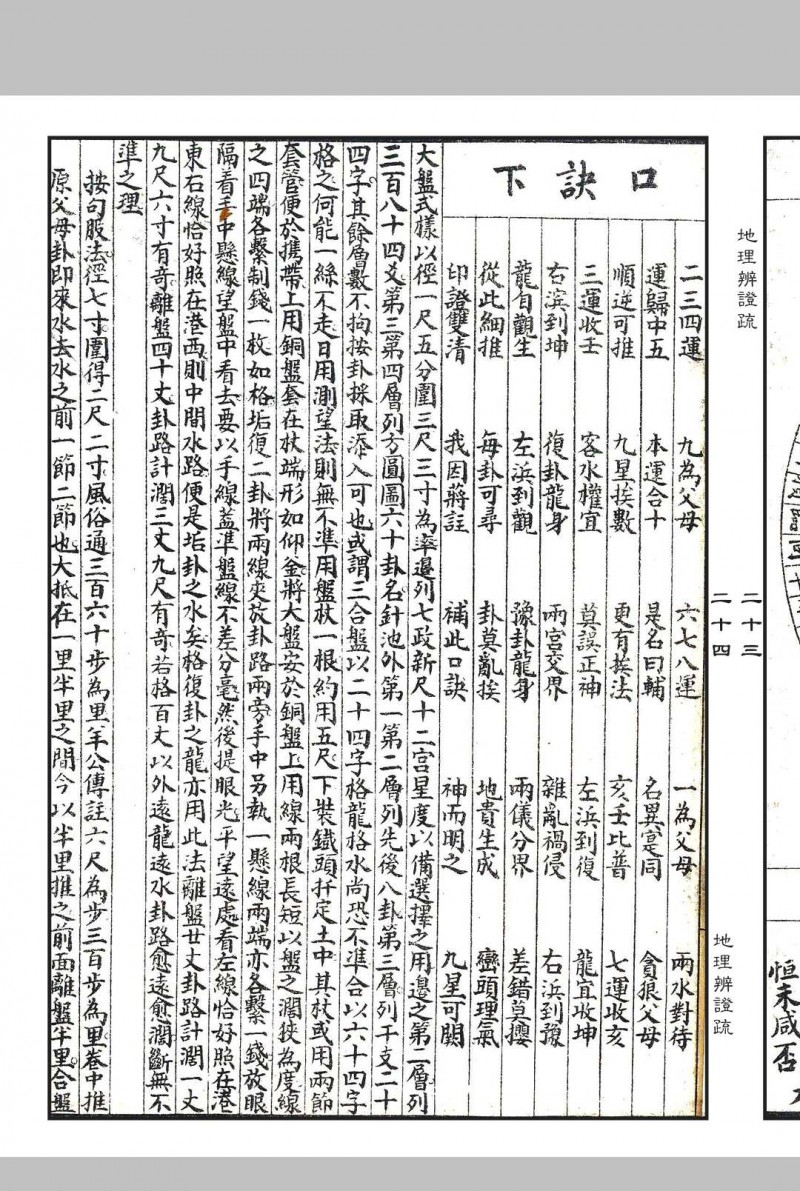 恒未咸否
地理辨證疏 二十三
二十四 地理辨證疏
口訣下
二三四運 九為父母 六七八運 一為父母 兩水對待
運歸中五 本運合十 是名曰輔 名異寔同 貪狼父母
順逆可推 九星挨數 更有挨法 亥壬比普 七運收亥
三運收壬 客水權宜 莫誤正神 左浜到復 龍宜收坤
右浜到坤 復卦龍身 兩宮交界 雜亂禍侵 右浜到豫
龍自觀生 左浜到觀 豫卦龍身 兩儀分界 差錯莫攖
從此細推 每卦可尋 卦莫亂挨 地貴生成 巒頭理氣
印證雙清 我因蔣註 補此口訣 神而明之 九星可闢
大盤式樣以徑一尺五分圍三尺三寸為率邊列七政新尺十二宮星度以備選擇之用邊之第二層列
三百八十四爻第三第四層列方圓圖六十卦名針池外第一第二層列先後八卦第三層列干支二十
四字其餘層數不拘按卦採取添入可也或謂三合盤以二十四字格龍格水尚恐不準合以六十四字
格之何能一絲不走曰用測望法則無不準用盤杖一根約用五尺下裝鐵頭扦定土中其杖或用兩節
套管便於攜帶上用銅盤套在杖端形如仰釜將大盤安於銅盤上用線兩根長短以盤之濶狹為度線
之四端各繫制錢一枚如格垢復二卦將兩線夾放卦路兩旁手中另執一懸線兩端亦各繫一錢放眼
隔看手中懸線望盤中看去要以手線蓋準盤線不差分毫然後提眼光平望遠處看左線恰好照在港
東右線恰好照在港西則中間水路便是垢卦之水矣格復卦之龍亦用此法離盤廿丈卦路計濶一丈
九尺六寸有奇離盤四十丈卦路計濶三丈九尺有奇若格百丈以外遠龍遠水卦路愈遠愈濶斷無不
準之理
按句股法徑七寸圍得二尺二寸風俗通三百六十步為里羊公傳註六尺為步三百步為里卷中推
原父母卦即來水去水之前一節二節也大抵在一里半里之間今以半里推之前面離盤半里合盤